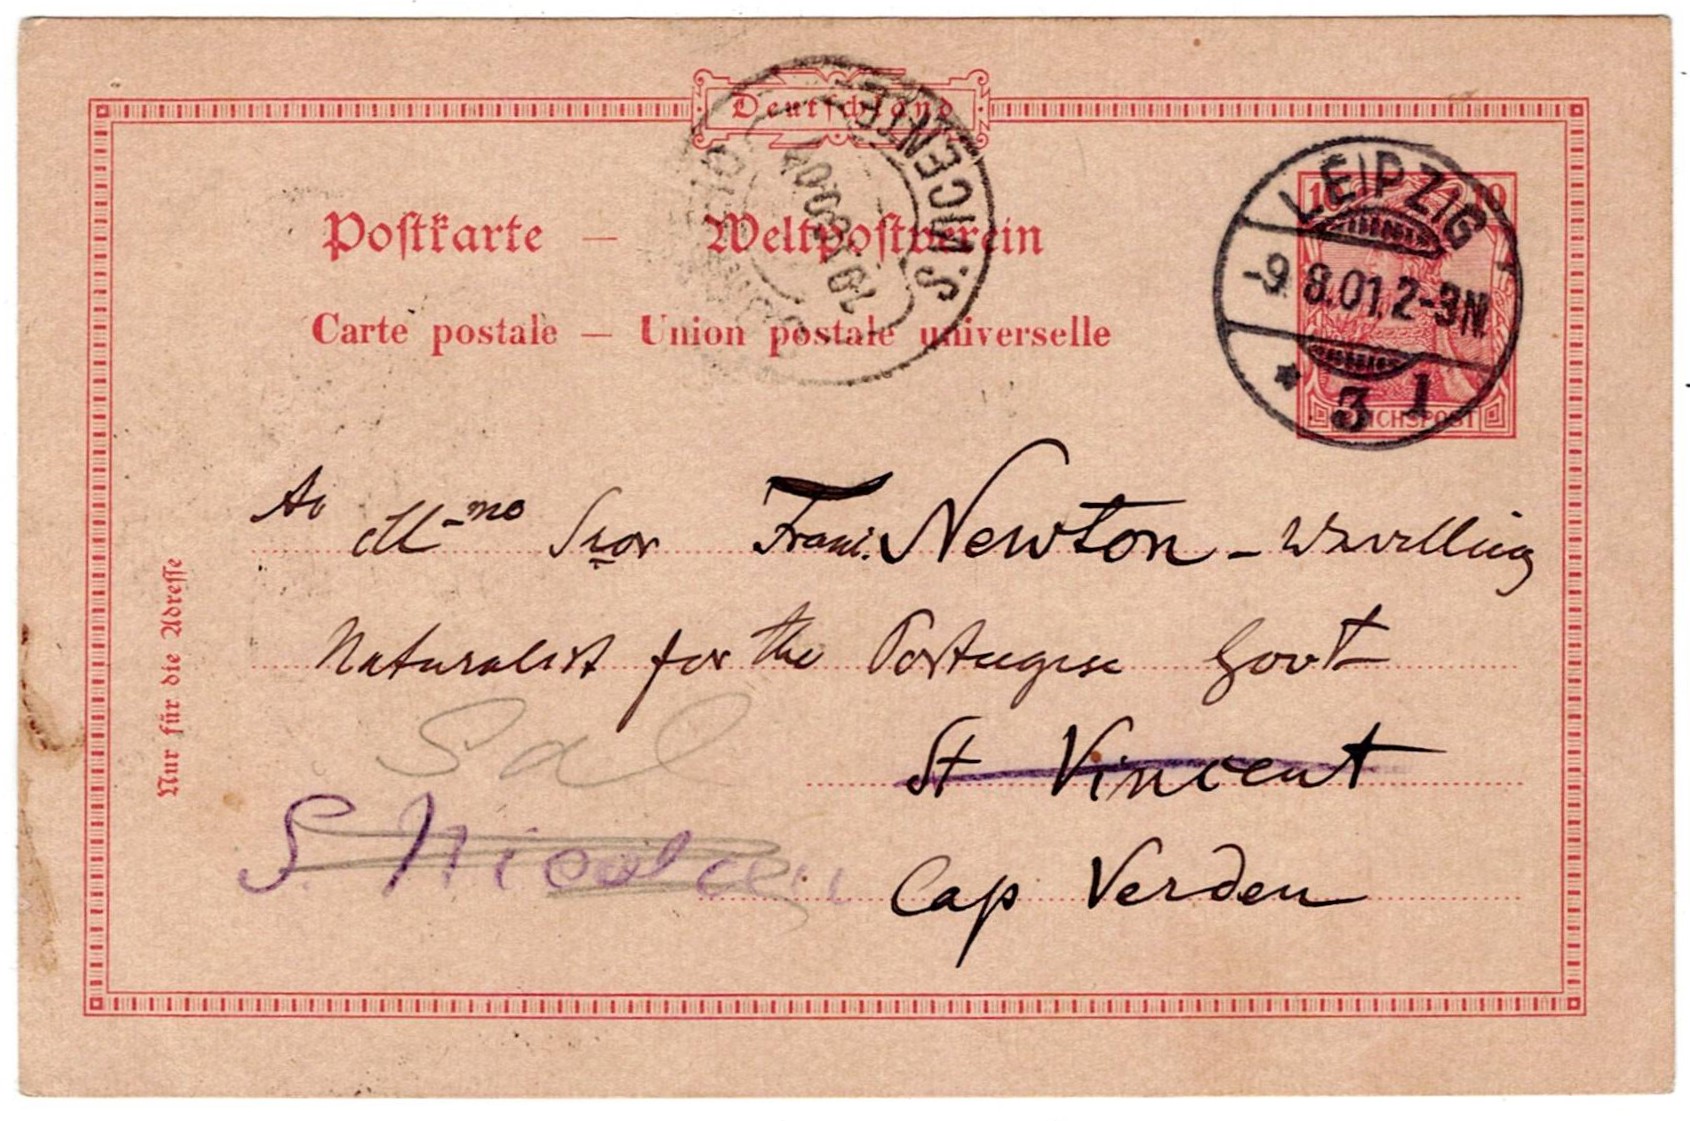 Deutschland
Postkarte — Weltpostverein
Carte postale — Union postale universelle
S. VICENTE
10 10
REICHSPOST
LEIPZIG
-9.8.01.2-3N.
* 31
Nur für die Adresse
Ao Ill-mo Snor Franc. Newton - travelling
Naturalist for the Portugese Govt
St Vincent
Cap Verden
Sal
S. Nicolau